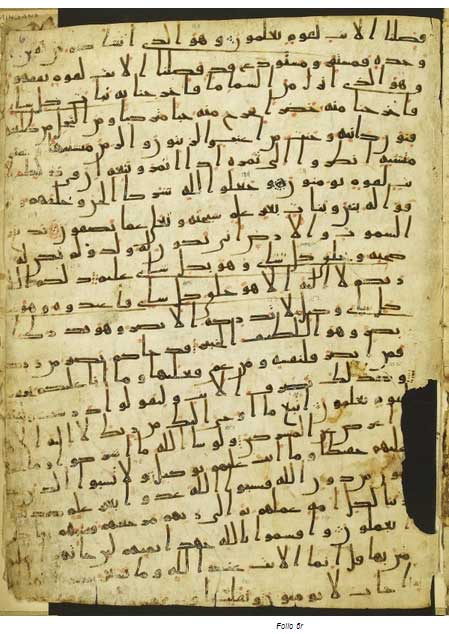 فصلنا الايت لقوم يعلمون وهو الذي انشاكم من
وحده فمستقر ومستودع قد فصلنا الايت لقوم يفقهون
وهو الذي انزل من السما ما فاخرجنا به نبات كل شي
فاخرجنا منه خضرا نخرج منه حبا متراكبا ومن النخل من طلعها
قنون دانيه وجنت من اعنب والزيتون والرمن مشتبها
متشبه انظروا الى ثمره اذا اثمر وينعه ان في ذلكم
لايت لقوم يومنون وجعلوا لله شركا الجن وخلقهم
وخرقوا له بنين وبنت بغير علم سبحنه وتعلى عما يصفون
السموت والارض انى يكون له ولد ولم تكن له
صحبه وخلق كل شي وهو بكل شي عليم ذلكم الله
ربكم لا اله الا هو خلق كل شي فاعبدوه وهو
كل شي وكيل لا تدركه الابصر وهو يدرك
بصر وهو اللطيف الخبير قد جاكم بصير من
فمن ابصر فلنفسه ومن عمي فعليها وما انا عليكم
وكذلك نصرف الايت وليقولوا
لقوم يعلمون اتبع ما اوحي اليك من ربك لا اله الا
واعرض عن المشركين ولو شا الله ما اشركوا وما
عليهم حفيظا وما انت عليهم بوكيل ولا تسبوا الذين
من دون الله فيسبوا الله عدوا بغير علم
زينا لكل امه عملهم ثم الى ربهم مرجعهم فينبهم
يعملون واقسموا بالله جهد ايمنهم لين جاتهم
بها قل انما الايت عند الله وما
جات لا يومنون ونقلب
Folio 6r